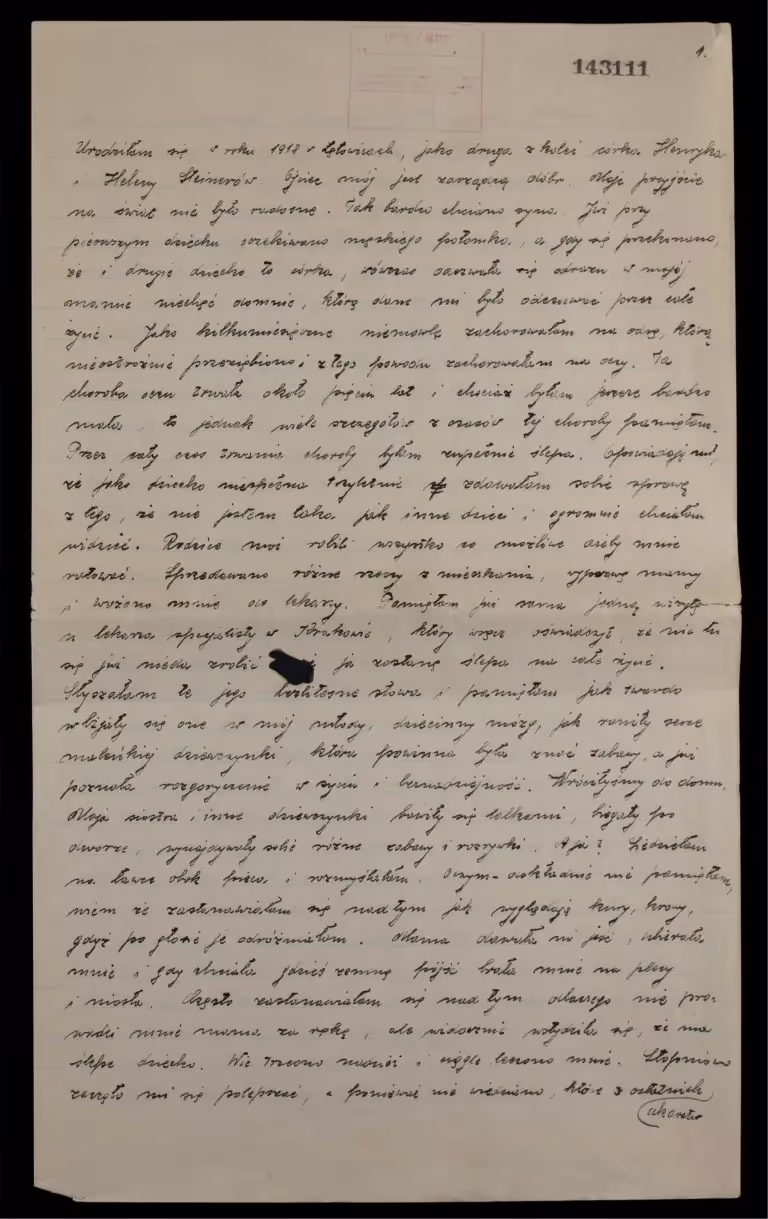 1.
143111
Urodziłam się w roku 1918 w Łętowicach, jako druga z kolei córka Henryka
i Heleny Steinerów. Ojciec mój jest zarządcą dóbr. Moje przyjście
na świat nie było radosne. Tak bardzo chciano syna. Już przy
pierwszym dziecku oczekiwano męskiego potomka, a gdy się przekonano,
że i drugie dziecko to córka, wówczas odezwała się odrazu w mojej
mamie niechęć do mnie, którą dane mi było odczuwać przez całe
życie. Jako kilkumiesięczne niemowlę zachorowałam na odrę, którą
nieostrożnie przeziębiono i z tego powodu zachorowałam na oczy. Ta
choroba oczu trwała około pięciu lat i chociaż byłam jeszcze bardzo
mała, to jednak wiele szczegółów z czasów tej choroby pamiętam.
Przez cały czas trwania choroby byłam zupełnie ślepa. Opowiadają mi,
że jako dziecko niespełna trzyletnie zdawałam sobie sprawę
z tego, że nie jestem taka jak inne dzieci i ogromnie chciałam
widzieć. Rodzice moi robili wszystko co możliwe ażeby mnie
ratować. Sprzedawano różne rzeczy z mieszkania, wyprawę mamy
i wożono mnie do lekarzy. Pamiętam już sama jedną wizytę
u lekarza specjalisty w Krakowie, który wręcz oświadczył, że nic tu
się już nieda zrobić i ja zostanę ślepa na całe życie.
Słyszałam te jego bezlitosne słowa i pamiętam jak twardo
wbijały się one w mój młody, dziecinny mózg, jak raniły serce
maleńkiej dziewczynki, która powinna była znać zabawy, a już
poznała rozgoryczenie w życiu i beznadziejność. Wróciłyśmy do domu.
Moja siostra i inne dziewczynki bawiły się lalkami, biegały po
dworze, wynajdywały sobie różne zabawy i rozrywki. A ja? Siedziałam
na ławce obok pieca i rozmyślałam. O czym - dokładnie nie pamiętam,
wiem że zastanawiałam się nad tym jak wyglądają kury, krowy,
gdyż po głosie je odróżniałam. Mama dawała mi jeść, ubierała
mnie i gdy chciała gdzieś ze mną pójść brała mnie na plecy
i niosła. Często zastanawiałam się nad tym dlaczego nie pro-
wadzi mnie mama za rękę, ale widocznie wstydziła się, że ma
ślepe dziecko. Nie tracono nadziei i ciągle leczono mnie. Stopniowo
zaczęło mi się polepszać, a ponieważ nie wiedziano, które z ostatnich
lekarstw